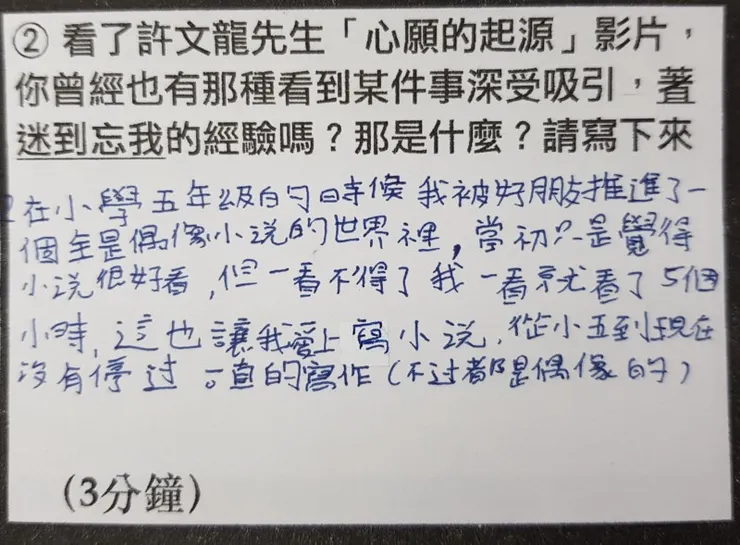 ② 看了許文龍先生「心願的起源」影片，
你曾經也有那種看到某件事深受吸引，著
迷到忘我的經驗嗎？那是什麼？請寫下來
在小學五年級的時候我被好朋友推進了一
個全是偶像小说的世界裡，當初只是覺得
小说很好看，但一看不得了我一看就看了5個
小時，這也讓我愛上寫小说，從小五到現在
沒有停过一直的寫作（不过都是偶像的）
(3分鐘)